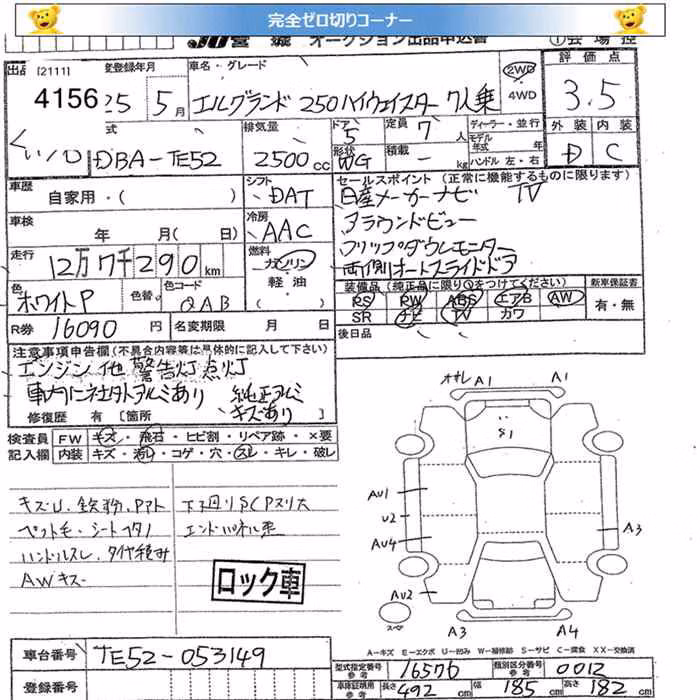 完全ゼロ切りコーナー
オークション出品申込書
出品 [2111] 登録年月 車名・グレード 2WD 評価点
4156 25 5月 エルグランド 250ハイウェイスター 7人乗 4WD 3.5
型式 排気量 ドア 5 定員 7 人 ディーラー・並行 外装 内装
DBA-TE52 2500cc 形状 WG 積載 - kg モデル年式 年 ハンドル 左・右 D C
車歴 自家用・( ) シフト DAT セールスポイント (正常に機能するものに限ります)
日産メーカーナビ TV
車検 年 月( 日) 冷房 AAC アラウンドビュー
フリップダウンモニター
走行 12万7千290km 燃料 ガソリン 軽油 ( ) 両側オートスライドドア
色 ホワイトP 色替 色コード QAB 装備品 (純正品に限り○をつけてください) 新車保証書
PS PW ABS エアB AW 有・無
SR ナビ TV カワ
R券 16090円 名変期限 月 日 後日品
注意事項申告欄 (不具合内容等は具体的に記入して下さい)
エンジン他 警告灯点灯
車内に社外アルミあり 純正アルミ
キズあり
修復歴 有 [箇所 ]
検査員 FW キズ・飛石・ヒビ割・リペア跡・×要
記入欄 内装 キズ・汚レ・コゲ・穴・スレ・キレ・破レ
キズU.鉄粉.Pアト
ペット毛・シートヘタリ
ハンドルスレ.タイヤ積み
AWキズ
下廻りSCPスリ大
エンドパネル歪
ロック車
A1 A1
S1
AU1
U2
AU4
A3
AU2
スペア
A3 A4
A-キズ E-エクボ U-凹み W-補修跡 S-サビ C-腐食 XX-交換済
車台番号 TE52-053149
登録番号
型式指定番号 参考 16576 類別区分番号 参考 0012
車庫証明用 参考 長さ 492cm 幅 185cm 高さ 182cm